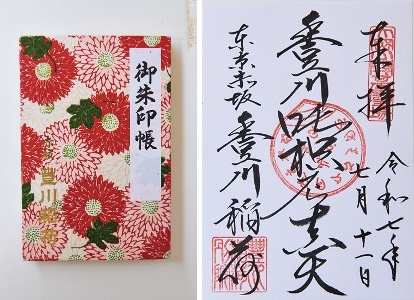 御朱印帳
豊川稲荷
奉拝
令和七年
七月十一日
豊川吒枳尼真天
東京赤坂
豊川稲荷